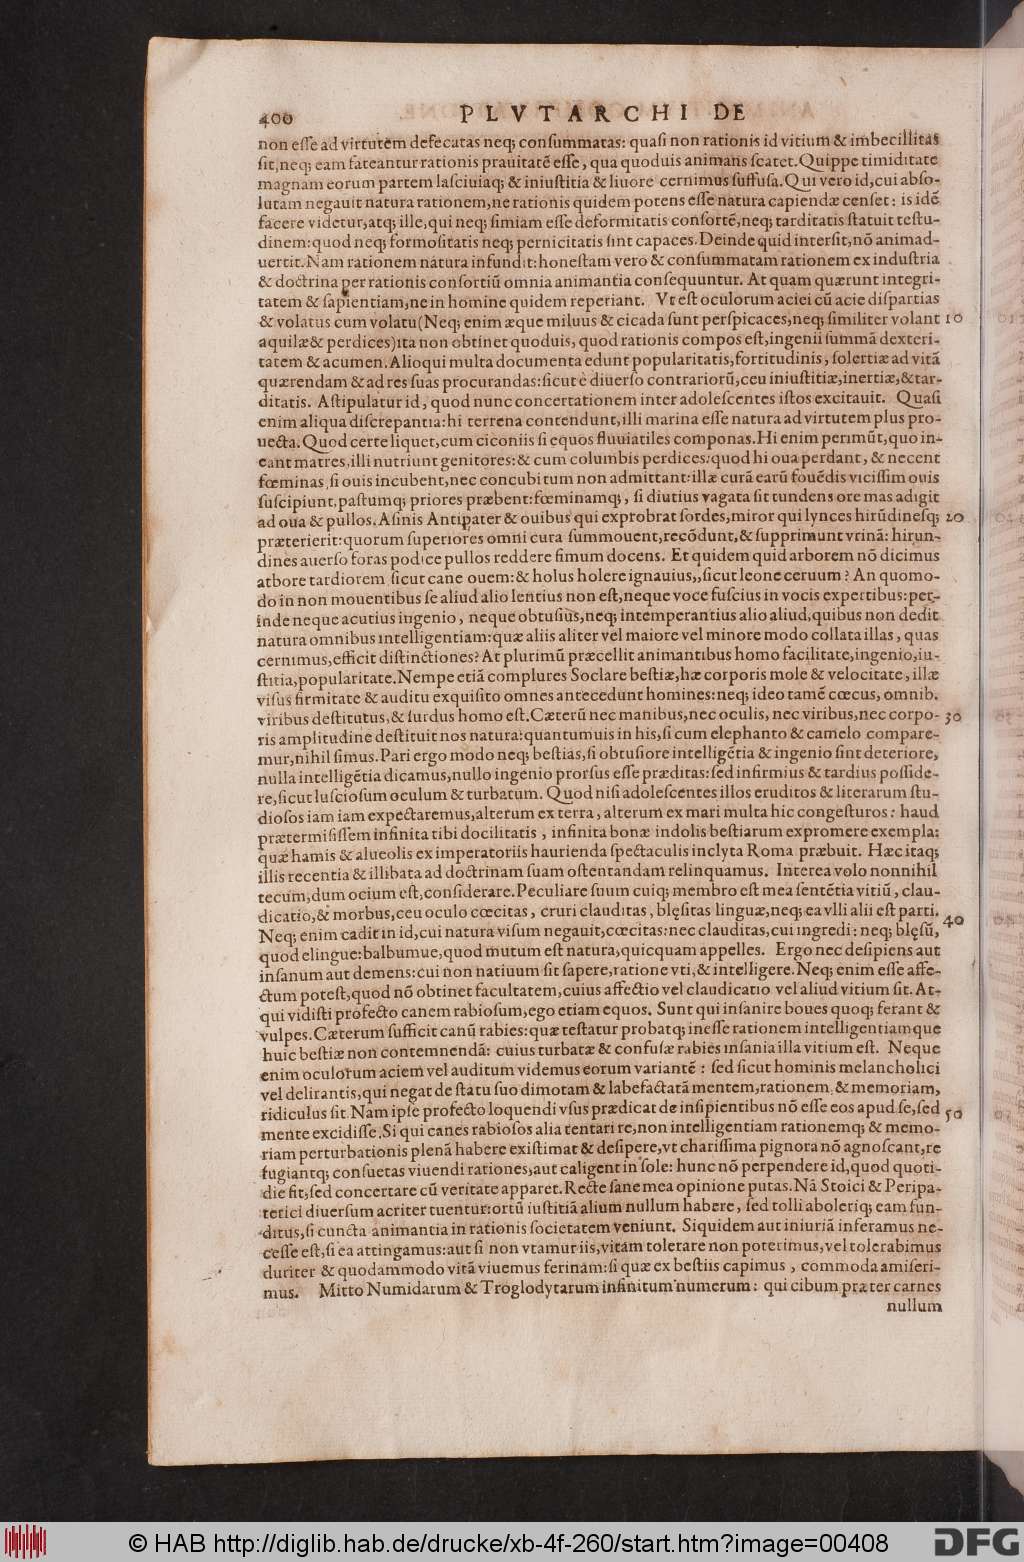 400 PLVTARCHI DE
non eſſe ad virtutem defecatas neq; conſummatas: quaſi non rationis id vitium & imbecillitas
ſit, neq; eam fateantur rationis prauitatē eſſe, qua quoduis animans ſcatet. Quippe timiditate
magnam eorum partem laſciuiaq; & iniuſtitia & liuore cernimus ſuffuſa. Qui vero id, cui abſo-
lutam negauit natura rationem, ne rationis quidem potens eſſe natura capiendæ cenſet: is idē
facere videtur, atq; ille, qui neq; ſimiam eſſe deformitatis conſortē, neq; tarditatis ſtatuit teſtu-
dinem: quod neq; formoſitatis neq; pernicitatis ſint capaces. Deinde quid interſit, nō animad-
uertit. Nam rationem natura infundit: honeſtam vero & conſummatam rationem ex induſtria
& doctrina per rationis conſortiū omnia animantia conſequuntur. At quam quærunt integri-
tatem & ſapientiam, ne in homine quidem reperiant. Vt eſt oculorum aciei cū acie diſparitas
& volatus cum volatu (Neq; enim æque miluus & cicada ſunt perſpicaces, neq; ſimiliter volant 10
aquilæ & perdices) ita non obtinet quoduis, quod rationis compos eſt, ingenii ſummā dexteri-
tatem & acumen. Alioqui multa documenta edunt popularitatis, fortitudinis, ſolertiæ ad vitā
quærendam & ad res ſuas procurandas: ſicut è diuerſo contrariorū, ceu iniuſtitiæ, inertiæ, & tar-
ditatis. Aſtipulatur id, quod nunc concertationem inter adoleſcentes iſtos excitauit. Quaſi
enim aliqua diſcrepantia: hi terrena contendunt, illi marina eſſe natura ad virtutem plus pro-
uecta. Quod certe liquet, cum ciconiis ſi equos fluuiatiles componas. Hi enim perimūt, quo in-
eant matres, illi nutriunt genitores: & cum columbis perdices: quod hi oua perdant, & necent
fœminas, ſi ouis incubent, nec concubitum non admittant: illæ curā earū fouēdis viciſſim ouis
ſuſcipiunt, paſtumq; priores præbent: fœminamq;, ſi diutius vagata ſit tundens ore mas adigit
ad oua & pullos. Aſinis Antipater & ouibus qui exprobrat ſordes, miror qui lynces hirūdineſq; 20
præterierit: quorum ſuperiores omni cura ſummouent, recōdunt, & ſupprimunt vrinā: hirun-
dines auerſo foras podice pullos reddere fimum docens. Et quidem quid arborem nō dicimus
arbore tardiorem ſicut cane ouem: & holus holere ignauius, ſicut leone ceruum? An quomo-
do in non mouentibus ſe aliud alio lentius non eſt, neque voce fuſcius in vocis expertibus: per-
inde neque acutius ingenio, neque obtuſius, neq; intemperantius alio aliud, quibus non dedit
natura omnibus intelligentiam: quæ aliis aliter vel maiore vel minore modo collata illas, quas
cernimus, efficit diſtinctiones? At plurimū præcellit animantibus homo facilitate, ingenio, iu-
ſtitia, popularitate. Nempe etiā complures Soclare beſtiæ, hæ corporis mole & velocitate, illæ
viſus firmitate & auditu exquiſito omnes antecedunt homines: neq; ideo tamē cœcus, omnib.
viribus deſtitutus, & ſurdus homo eſt. Cæterū nec manibus, nec oculis, nec viribus, nec corpo- 30
ris amplitudine deſtituit nos natura: quantumuis in his, ſi cum elephanto & camelo compare-
mur, nihil ſimus. Pari ergo modo neq; beſtias, ſi obtuſiore intelligētia & ingenio ſint deteriore,
nulla intelligētia dicamus, nullo ingenio prorſus eſſe præditas: ſed infirmius & tardius poſſide-
re, ſicut luſcioſum oculum & turbatum. Quod niſi adoleſcentes illos eruditos & literarum ſtu-
dioſos iam iam expectaremus, alterum ex terra, alterum ex mari multa hic congeſturos: haud
prætermiſiſſem infinita tibi docilitatis, infinita bonæ indolis beſtiarum expromere exempla:
quæ hamis & alueolis ex imperatoriis haurienda ſpectaculis inclyta Roma præbuit. Hæc itaq;
illis recentia & illibata ad doctrinam ſuam oſtentandam relinquamus. Interea volo nonnihil
tecum, dum ocium eſt, conſiderare. Peculiare ſuum cuiq; membro eſt mea ſentētia vitiū, clau-
dicatio, & morbus, ceu oculo cœcitas, cruri clauditas, blęſitas linguæ, neq; ea vlli alii eſt parti. 40
Neq; enim cadit in id, cui natura viſum negauit, cœcitas: nec clauditas, cui ingredi: neq; blęſū,
quod elingue: balbumue, quod mutum eſt natura, quicquam appelles. Ergo nec deſipiens aut
inſanum aut demens: cui non natiuum ſit ſapere, ratione vti, & intelligere. Neq; enim eſſe affe-
ctum poteſt, quod nō obtinet facultatem, cuius affectio vel claudicatio vel aliud vitium ſit. At-
qui vidiſti profecto canem rabioſum, ego etiam equos. Sunt qui inſanire boues quoq; ferant &
vulpes. Cæterum ſufficit canū rabies: quæ teſtatur probatq; ineſſe rationem intelligentiamque
huic beſtiæ non contemnendā: cuius turbatæ & confuſæ rabies inſania illa vitium eſt. Neque
enim oculorum aciem vel auditum videmus eorum variantē: ſed ſicut hominis melancholici
vel delirantis, qui negat de ſtatu ſuo dimotam & labefactatā mentem, rationem & memoriam,
ridiculus ſit. Nam ipſe profecto loquendi vſus prædicat de inſipientibus nō eſſe eos apud ſe, ſed 50
mente excidiſſe. Si qui canes rabioſos alia tentari re, non intelligentiam rationemq; & memo-
riam perturbationis plenā habere exiſtimat & deſipere, vt chariſſima pignora nō agnoſcant, re
fugiantq; conſuetas viuendi rationes, aut caligent in ſole: hunc nō perpendere id, quod quoti-
die fit, ſed concertare cū veritate apparet. Recte ſane mea opinione putas. Nā Stoici & Peripa-
tetici diuerſum acriter tuentur: ortū iuſtitiā alium nullum habere, ſed tolli aboleriq; eam fun-
ditus, ſi cuncta animantia in rationis ſocietatem veniunt. Siquidem aut iniuriā inferamus ne-
ceſſe eſt, ſi ea attingamus: aut ſi non vtamur iis, vitam tolerare non poterimus, vel tolerabimus
duriter & quodammodo vitā viuemus ferinam: ſi quæ ex beſtiis capimus, commoda amiſeri-
mus. Mitto Numidarum & Troglodytarum infinitum numerum: qui cibum præter carnes
nullum
© HAB http://diglib.hab.de/drucke/xb-4f-260/start.htm?image=00408
DFG